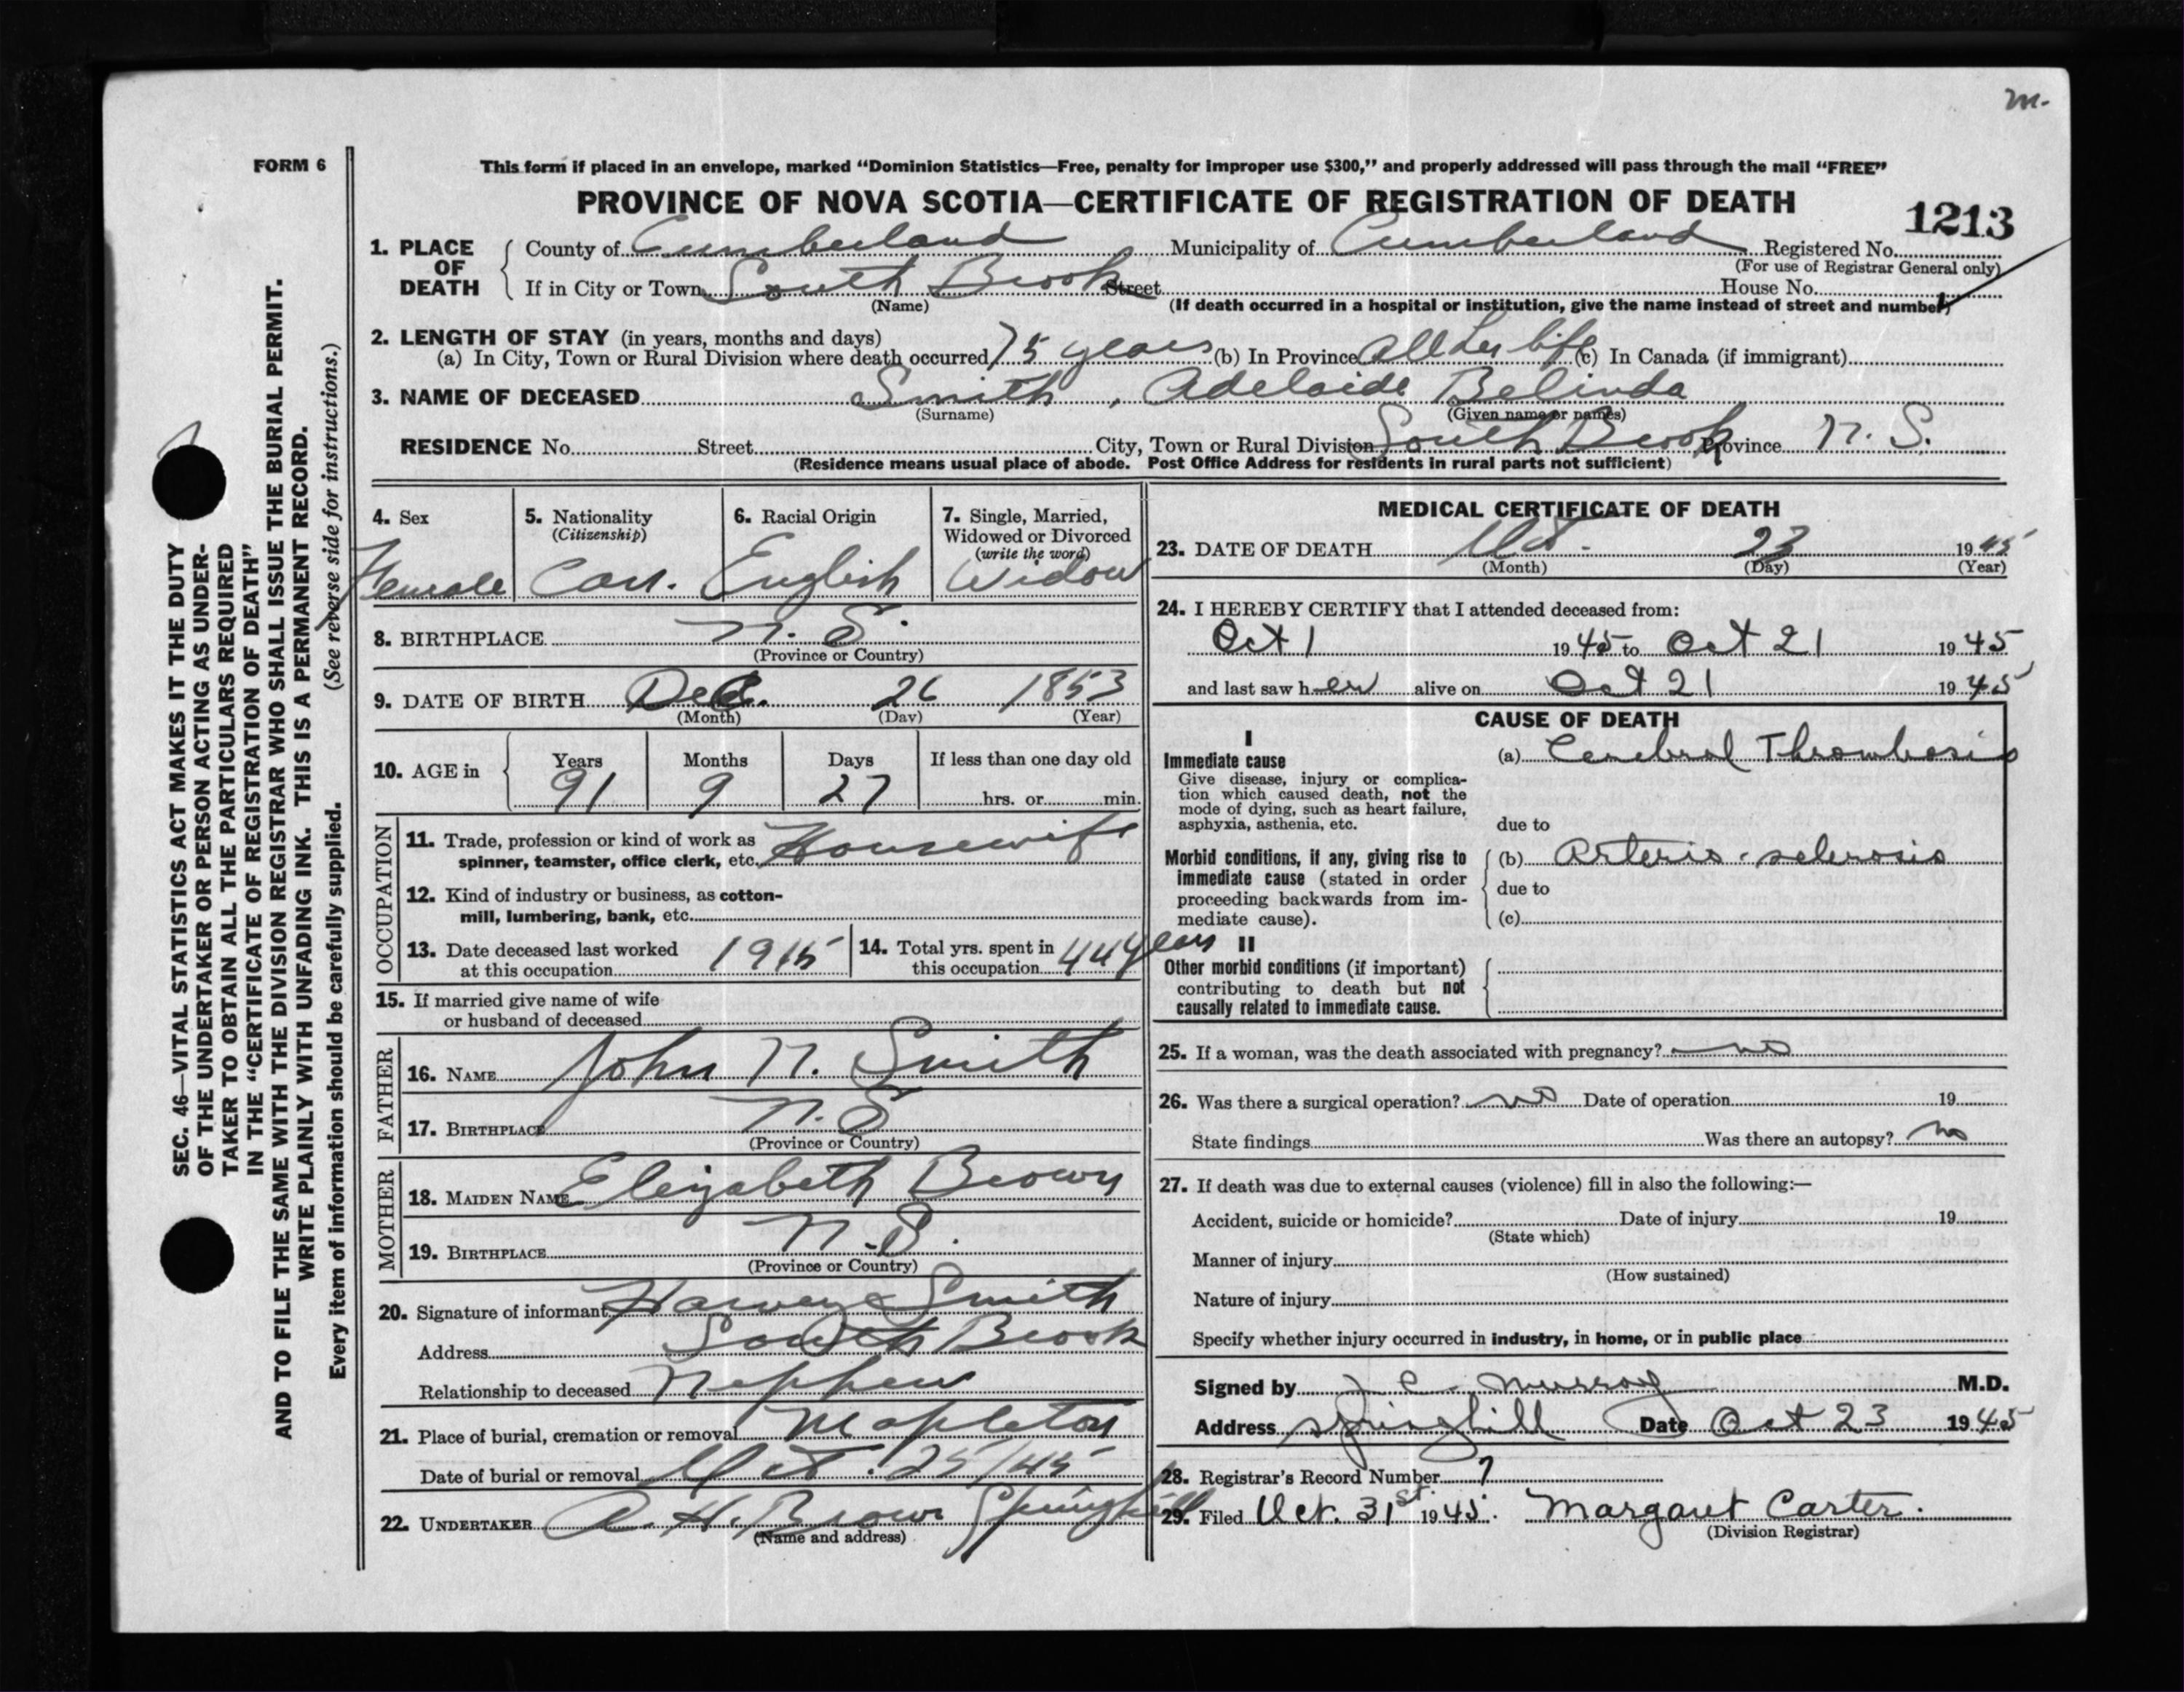 m.
FORM 6
This form if placed in an envelope, marked "Dominion Statistics—Free, penalty for improper use $300," and properly addressed will pass through the mail "FREE"
PROVINCE OF NOVA SCOTIA—CERTIFICATE OF REGISTRATION OF DEATH
1213
1. PLACE OF DEATH County of Cumberland Municipality of Cumberland Registered No.
(For use of Registrar General only)
If in City or Town South Brook Street House No.
(Name) (If death occurred in a hospital or institution, give the name instead of street and number)
2. LENGTH OF STAY (in years, months and days)
(a) In City, Town or Rural Division where death occurred 75 years (b) In Province All her life (c) In Canada (if immigrant)
3. NAME OF DECEASED Smith, Adelaide Belinda
(Surname) (Given name or names)
RESIDENCE No. Street City, Town or Rural Division South Brook Province N. S.
(Residence means usual place of abode. Post Office Address for residents in rural parts not sufficient)
4. Sex 5. Nationality 6. Racial Origin 7. Single, Married,
(Citizenship) Widowed or Divorced
(write the word)
Female Can. English Widow
8. BIRTHPLACE N. S.
(Province or Country)
9. DATE OF BIRTH Dec. 26 1853
(Month) (Day) (Year)
10. AGE in Years Months Days If less than one day old
91 9 27 hrs. or min.
OCCUPATION
11. Trade, profession or kind of work as
spinner, teamster, office clerk, etc. Housewife
12. Kind of industry or business, as cotton-
mill, lumbering, bank, etc.
13. Date deceased last worked
at this occupation 1915
14. Total yrs. spent in
this occupation 44 years
15. If married give name of wife
or husband of deceased
FATHER
16. NAME John N. Smith
17. BIRTHPLACE N. S
(Province or Country)
MOTHER
18. MAIDEN NAME Elizabeth Brown
19. BIRTHPLACE N. S.
(Province or Country)
20. Signature of informant Harvey Smith
Address South Brook
Relationship to deceased Nephew
21. Place of burial, cremation or removal Mapleton
Date of burial or removal Oct. 25/45
22. UNDERTAKER A. H. Brown Springhill
(Name and address)
MEDICAL CERTIFICATE OF DEATH
23. DATE OF DEATH Oct. 23 1945
(Month) (Day) (Year)
24. I HEREBY CERTIFY that I attended deceased from:
Oct 1 1945 to Oct 21 1945
and last saw her alive on Oct 21 1945
CAUSE OF DEATH
I
Immediate cause (a) Cerebral Thrombosis
Give disease, injury or complica-
tion which caused death, not the
mode of dying, such as heart failure,
asphyxia, asthenia, etc. due to
Morbid conditions, if any, giving rise to (b) Arterio-sclerosis
immediate cause (stated in order
proceeding backwards from im- due to
mediate cause). (c)
II
Other morbid conditions (if important)
contributing to death but not
causally related to immediate cause.
25. If a woman, was the death associated with pregnancy? no
26. Was there a surgical operation? no Date of operation 19
State findings Was there an autopsy? no
27. If death was due to external causes (violence) fill in also the following:—
Accident, suicide or homicide? Date of injury 19
(State which)
Manner of injury
(How sustained)
Nature of injury
Specify whether injury occurred in industry, in home, or in public place
Signed by J C. Murray M.D.
Address Springhill Date Oct 23 1945
28. Registrar's Record Number 7
29. Filed Oct. 31st 1945. Margaret Carter.
(Division Registrar)
SEC. 46—VITAL STATISTICS ACT MAKES IT THE DUTY
OF THE UNDERTAKER OR PERSON ACTING AS UNDER-
TAKER TO OBTAIN ALL THE PARTICULARS REQUIRED
IN THE "CERTIFICATE OF REGISTRATION OF DEATH"
AND TO FILE THE SAME WITH THE DIVISION REGISTRAR WHO SHALL ISSUE THE BURIAL PERMIT.
WRITE PLAINLY WITH UNFADING INK. THIS IS A PERMANENT RECORD.
Every item of information should be carefully supplied. (See reverse side for instructions.)